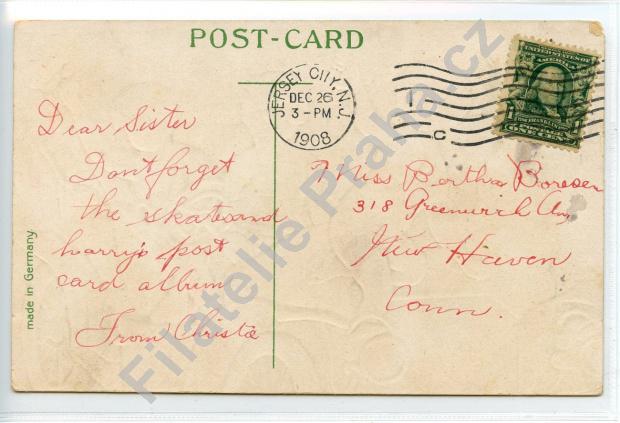 POST-CARD
JERSEY CITY, N.J.
DEC 26
3-PM
1908
C
UNITED STATES OF
AMERICA
1
1
ONE CENT
Dear Sister
Dont forget
the skates and
harry's post
card album
From Christie
Miss Bertha Boresen
318 Greenwich Av
New Haven
Conn.
made in Germany
Filatelie Praha.cz